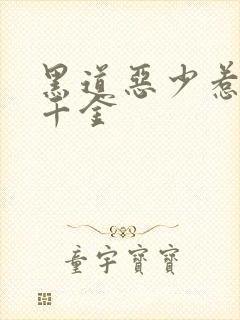 黑道惡少惹
千金
童宇寶寶